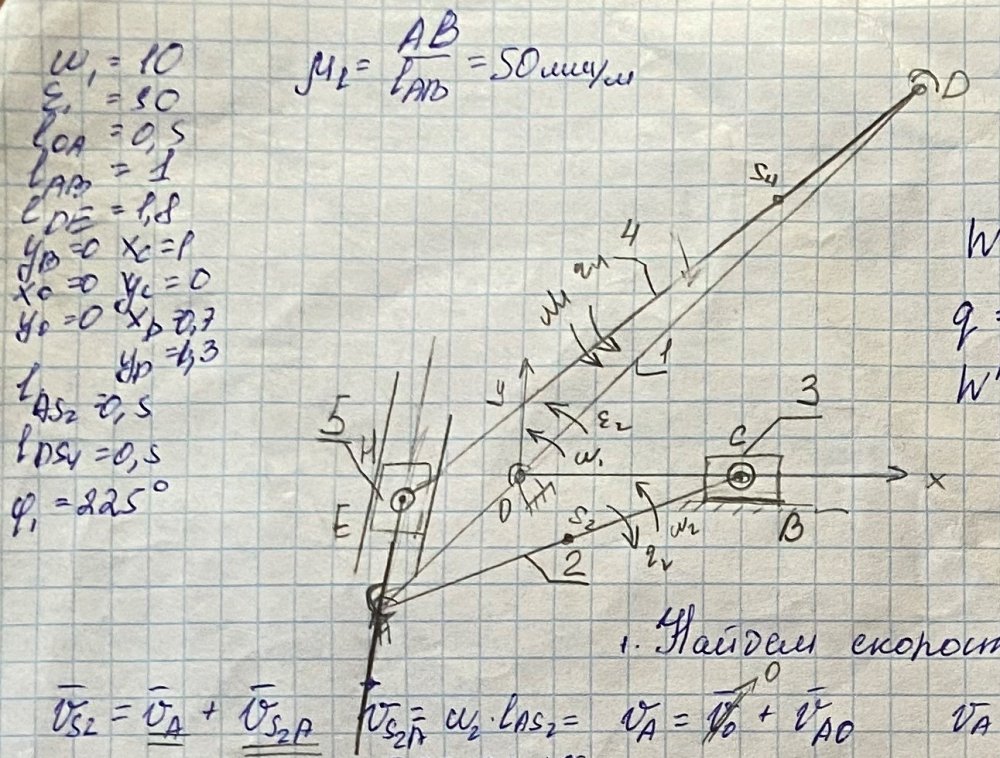 ω₁ = 10
ε₁ = 30
l_OA = 0,5
l_AB = 1
l_DE = 1,8
y_B = 0 x_C = 1
x_O = 0 y_C = 0
y_O = 0 x_D = 0,7
y_D = 1,3
l_AS₂ = 0,5
l_DS₄ = 0,5
φ₁ = 225°
μ_l = AB / l_AB = 50 мм/м
D
S₄
4
1
y
ε₂
ω₁
5
H
E
O
3
C
x
B
S₂
ω₂
2
A
W
q =
W
1. Найдем скорост
v̄_S₂ = v̄_A + v̄_S₂A v̄_S₂A = ω₂ · l_AS₂ = v̄_A = v̄_O + v̄_AO v̄_A
0